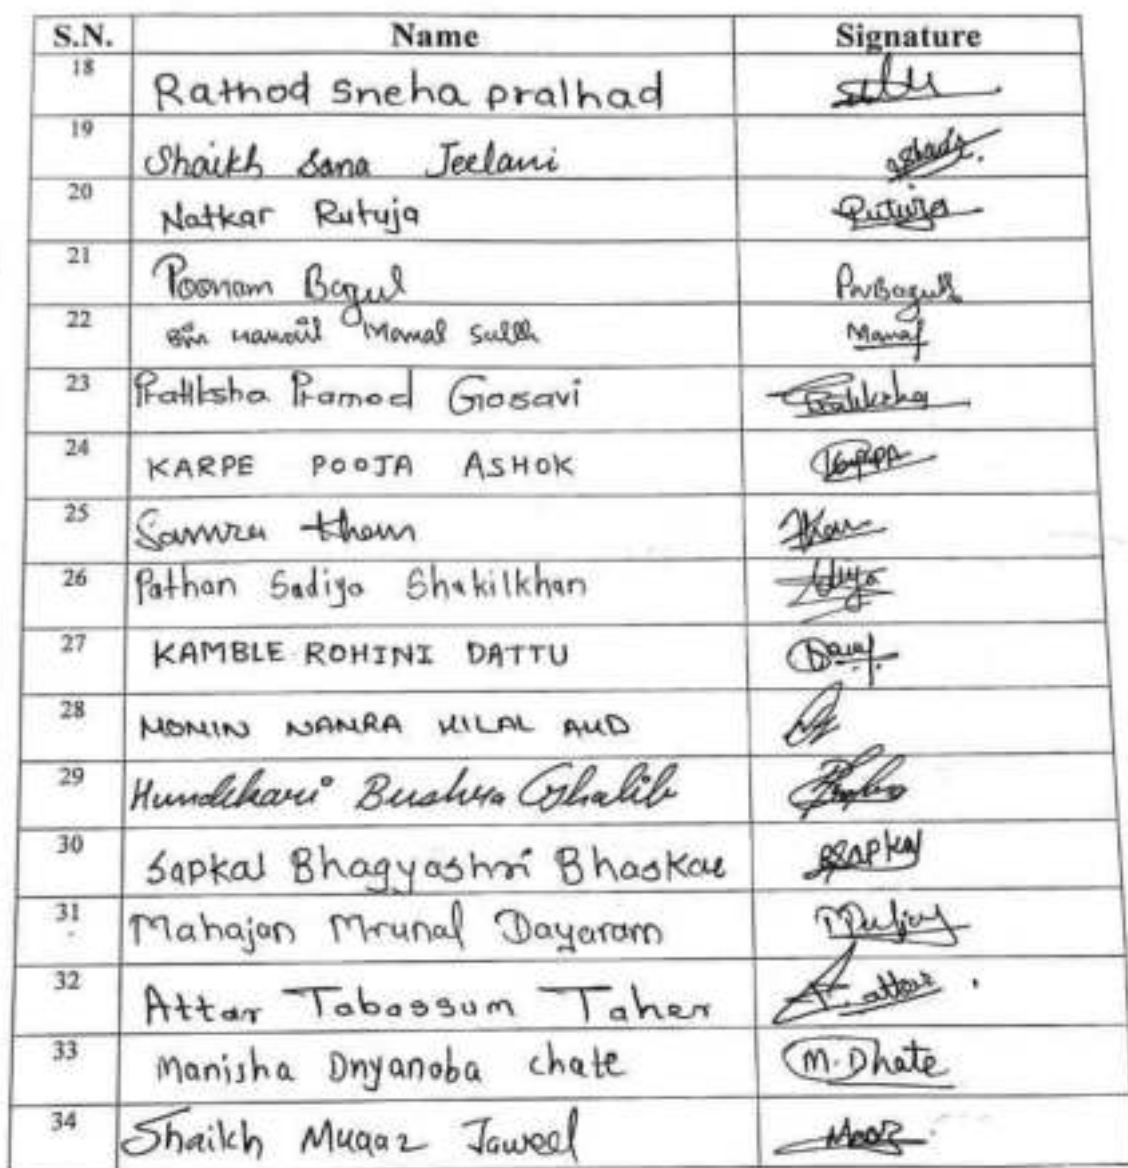 S.N. Name Signature
18 Rathod Sneha pralhad
19 Shaikh Sana Jeelani
20 Natkar Rutuja Rutuja
21 Poonam Bagul PNBagul
22 Manal Manal
23 Pratiksha Pramod Gosavi Pratiksha
24 KARPE POOJA ASHOK
25 Samra Khan Khan
26 Pathan Sadiya Shakilkhan
27 KAMBLE ROHINI DATTU
28 MOMIN NAMRA HILAL AHD
29 Hundekari Bushra Ghalib
30 Sapkal Bhagyashri Bhaskar BSapkal
31 Mahajan Mrunal Dayaram
32 Attar Tabassum Taher T. attar
33 Manisha Dnyanoba chate M. Dhate
34 Shaikh Muqaz Jaweel